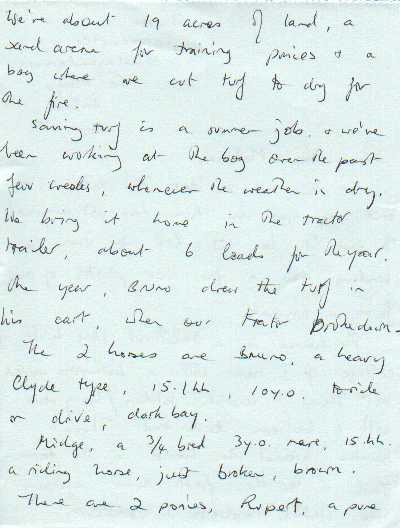 We're about 19 acres of land, a
sand arena for training ponies & a
bog where we cut turf to dry for
the fire.
Saving turf is a summer job. & we've
been working at the bog over the past
few weeks, whenever the weather is dry.
We bring it home in the tractor
trailer, about 6 loads for the year.
One year, Bruno drew the turf in
his cart, when our tractor broke down.
The 2 horses are Bruno, a heavy
Clyde type, 15.1hh, 10y.o. to ride
or drive, dark bay.
Midge, a 3/4 bred 3y.o. mare, 15.hh.
a riding horse, just broken, brown.
There are 2 ponies, Rupert, a pure